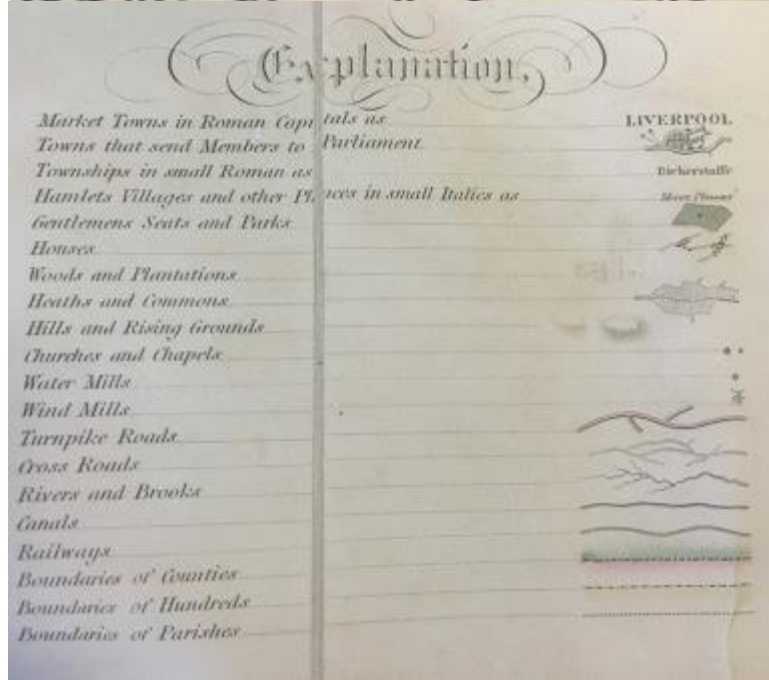 Explanation,
Market Towns in Roman Capitals as LIVERPOOL
Towns that send Members to Parliament
Townships in small Roman as Bickerstaffe
Hamlets Villages and other Places in small Italics as
Gentlemens Seats and Parks
Houses
Woods and Plantations
Heaths and Commons
Hills and Rising Grounds
Churches and Chapels
Water Mills
Wind Mills
Turnpike Roads
Cross Roads
Rivers and Brooks
Canals
Railways
Boundaries of Counties
Boundaries of Hundreds
Boundaries of Parishes